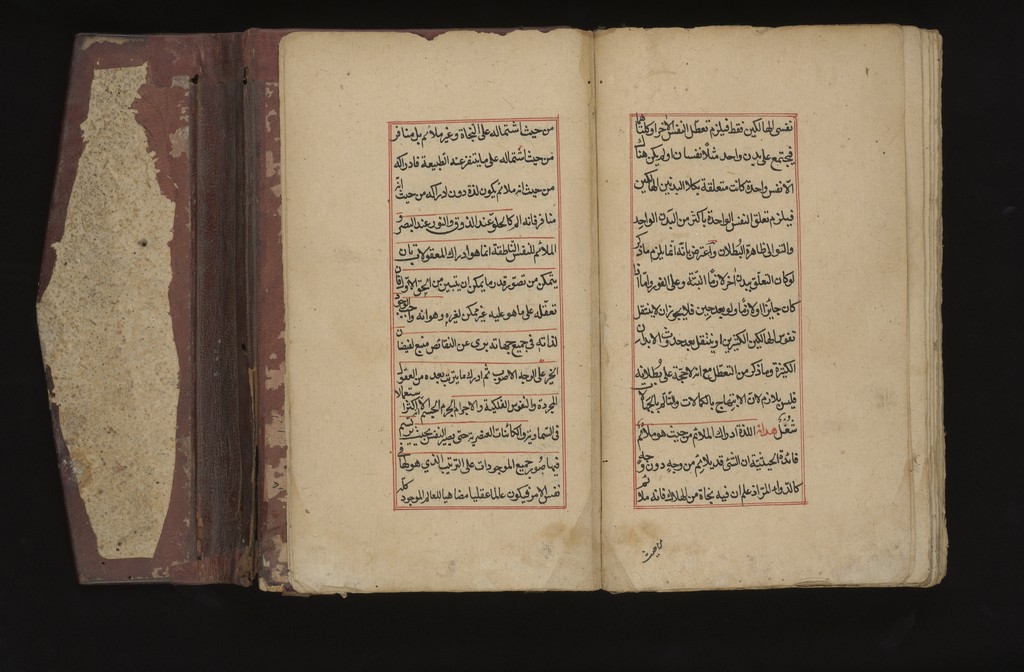 نفسى الهالكين فقط فيلزم تعطل النفس الاخر او كلتاهما
فيجتمع على بدن واحد مثلا نفسان اولم يكن هناك
الا نفس واحدة كانت متعلقة بكلا البدنين الهالكين
فيلزم تعلق النفس الواحدة باكثر من البدن الواحد
والتوالى ظاهرة البطلان واعترض بانه انما يلزم ما ذكر
لو كان التعلق ببدن اخر لازما البتة وعلى الفور واما اذا
كان جايزا او لازما ولو بعد حين فلا يجوز ان لا ينتقل
نفوس الهالكين الكثيرين او ينتقل بعد حدوث الابدان
الكثيرة وما ذكر من التعطل مع انه لا حجة على بطلانه
فليس بلازم لان الابتهاج بالكمالات والتألم بالجهالات
شغل هداية اللذة ادراك الملائم من حيث هو ملائم
فائدة الحيثية ان الشئ قد يلائم من وجه دون وجه
كالدواء المر اذا علم ان فيه نجاة من الهلاك فانه ملائم
من حيث
من حيث اشتماله على النجاة وغير ملائم بل منافر
من حيث اشتماله على ما يتنفر عنه الطبيعة فادراكه
من حيث انه ملائم يكون لذة دون ادراكه من حيث انه
منافر فانه الم كالحلو عند الذوق والنور عند البصر و
الملائم للنفس الناطقة انما هو ادراك المعقولات بان
يتمكن من تصور قدر ما يمكن ان يتبين من الحق الاول فان
تعقله على ما هو عليه غير ممكن لغيره وهو انه واجب الوجود
لذاته فى جميع جهاته برى عن النقائص منبع لفيضان
الخير على الوجه الاصوب ثم ادراك ما يترتب بعده من العقول
المجردة والنفوس الفلكية والاجرام
فى السماوية والكائنات العنصرية حتى يصير النفس بحيث يرتسم
فيها صور جميع الموجودات على الترتيب الذى هو لها
نفس الامر فيكون عالما عقليا مضاهيا للعالم الموجود كله